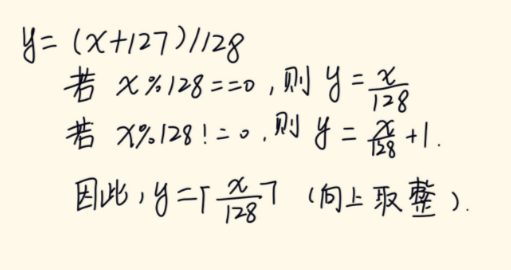 y=(x+127)/128
若 x%128==0,则 y=x/128
若 x%128!=0,则 y=x/128+1.
因此,y=⌈x/128⌉ (向上取整).